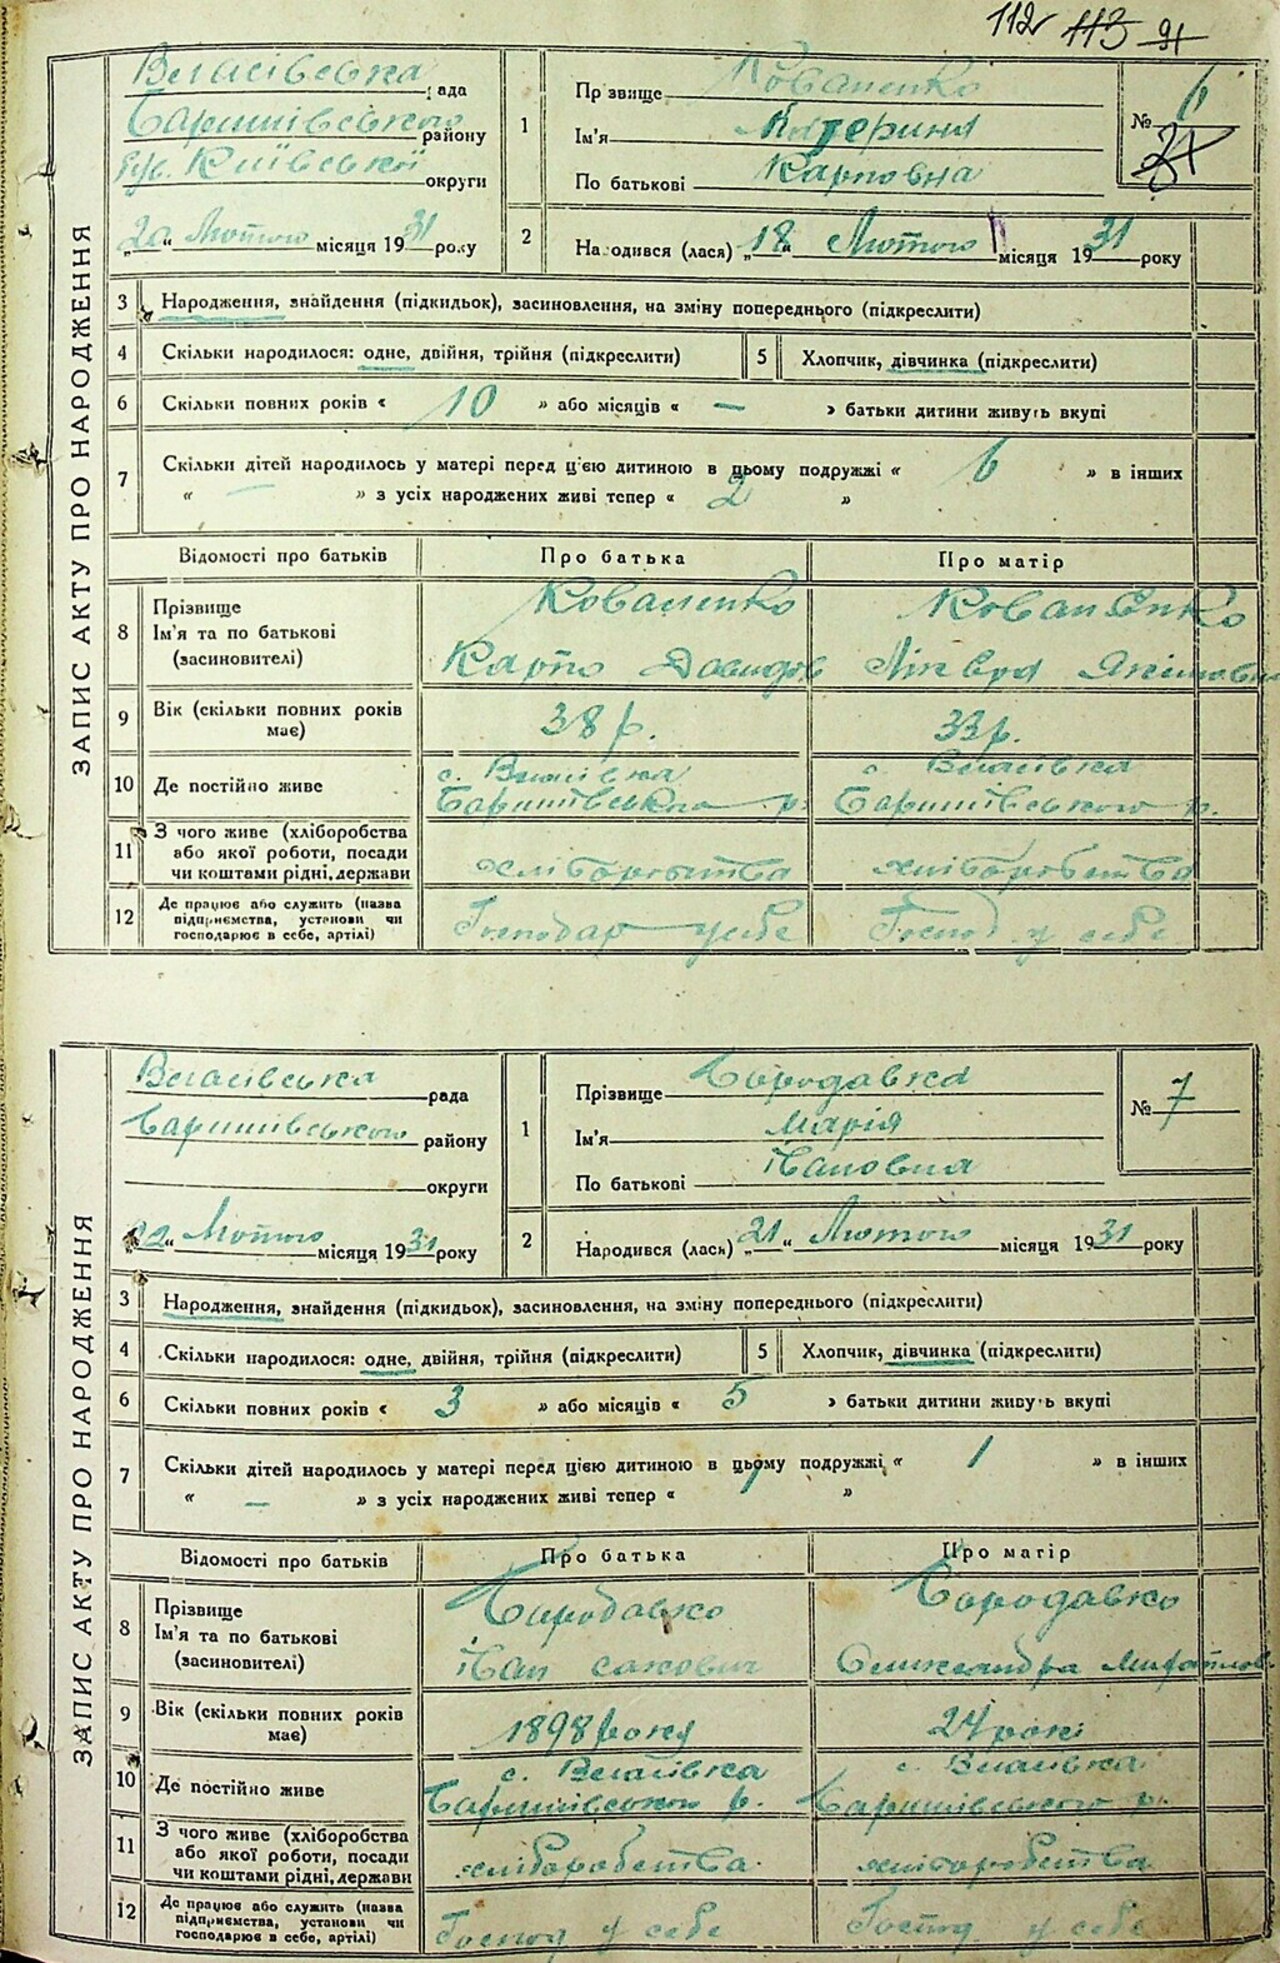 112 113 91
Власівська рада
Баришівського району
Київської округи
„20“ Лютого місяця 1931 року
ЗАПИС АКТУ ПРО НАРОДЖЕННЯ
1
Прізвище Коваленко
Ім'я Катерина
По батькові Карповна
№ 6
2
Народився (лася) „18“ Лютого місяця 1931 року
3 Народження, знайдення (підкидьок), засиновлення, на зміну попереднього (підкреслити)
4 Скільки народилося: одне, двійня, трійня (підкреслити)
5 Хлопчик, дівчинка (підкреслити)
6 Скільки повних років « 10 » або місяців « — » батьки дитини живуть вкупі
7 Скільки дітей народилось у матері перед цією дитиною в цьому подружжі « 6 » в інших
« — » з усіх народжених живі тепер « 2 »
Відомості про батьків Про батька Про матір
8 Прізвище
Ім'я та по батькові
(засиновителі)
Коваленко
Карпо Давидов
Коваленко
9 Вік (скільки повних років
має)
38 р.
33 р.
10 Де постійно живе
с. Власівка
Баришівського р.
с. Власівка
Баришівського р.
11 З чого живе (хліборобства
або якої роботи, посади
чи коштами рідні, держави
хліборобства
хліборобства
12 Де працює або служить (назва
підприємства, установи чи
господарює в себе, артілі)
Господар у себе
Господ у себе
Власівська рада
Баришівського району
округи
„22“ Лютого місяця 1931 року
ЗАПИС АКТУ ПРО НАРОДЖЕННЯ
1
Прізвище Бородавка
Ім'я Марія
По батькові Івановна
№ 7
2
Народився (лася) „21“ Лютого місяця 1931 року
3 Народження, знайдення (підкидьок), засиновлення, на зміну попереднього (підкреслити)
4 Скільки народилося: одне, двійня, трійня (підкреслити)
5 Хлопчик, дівчинка (підкреслити)
6 Скільки повних років « 3 » або місяців « 5 » батьки дитини живуть вкупі
7 Скільки дітей народилось у матері перед цією дитиною в цьому подружжі « 1 » в інших
« — » з усіх народжених живі тепер « 1 »
Відомості про батьків Про батька Про матір
8 Прізвище
Ім'я та по батькові
(засиновителі)
Бородавко
Іван
Бородавко
Олександра
9 Вік (скільки повних років
має)
1898 рока
24 рокі
10 Де постійно живе
с. Власівка
Баришівського р.
с. Власівка
Баришівського р.
11 З чого живе (хліборобства
або якої роботи, посади
чи коштами рідні, держави
хліборобства
хліборобства
12 Де працює або служить (назва
підприємства, установи чи
господарює в себе, артілі)
Господ у себе
Господ у себе